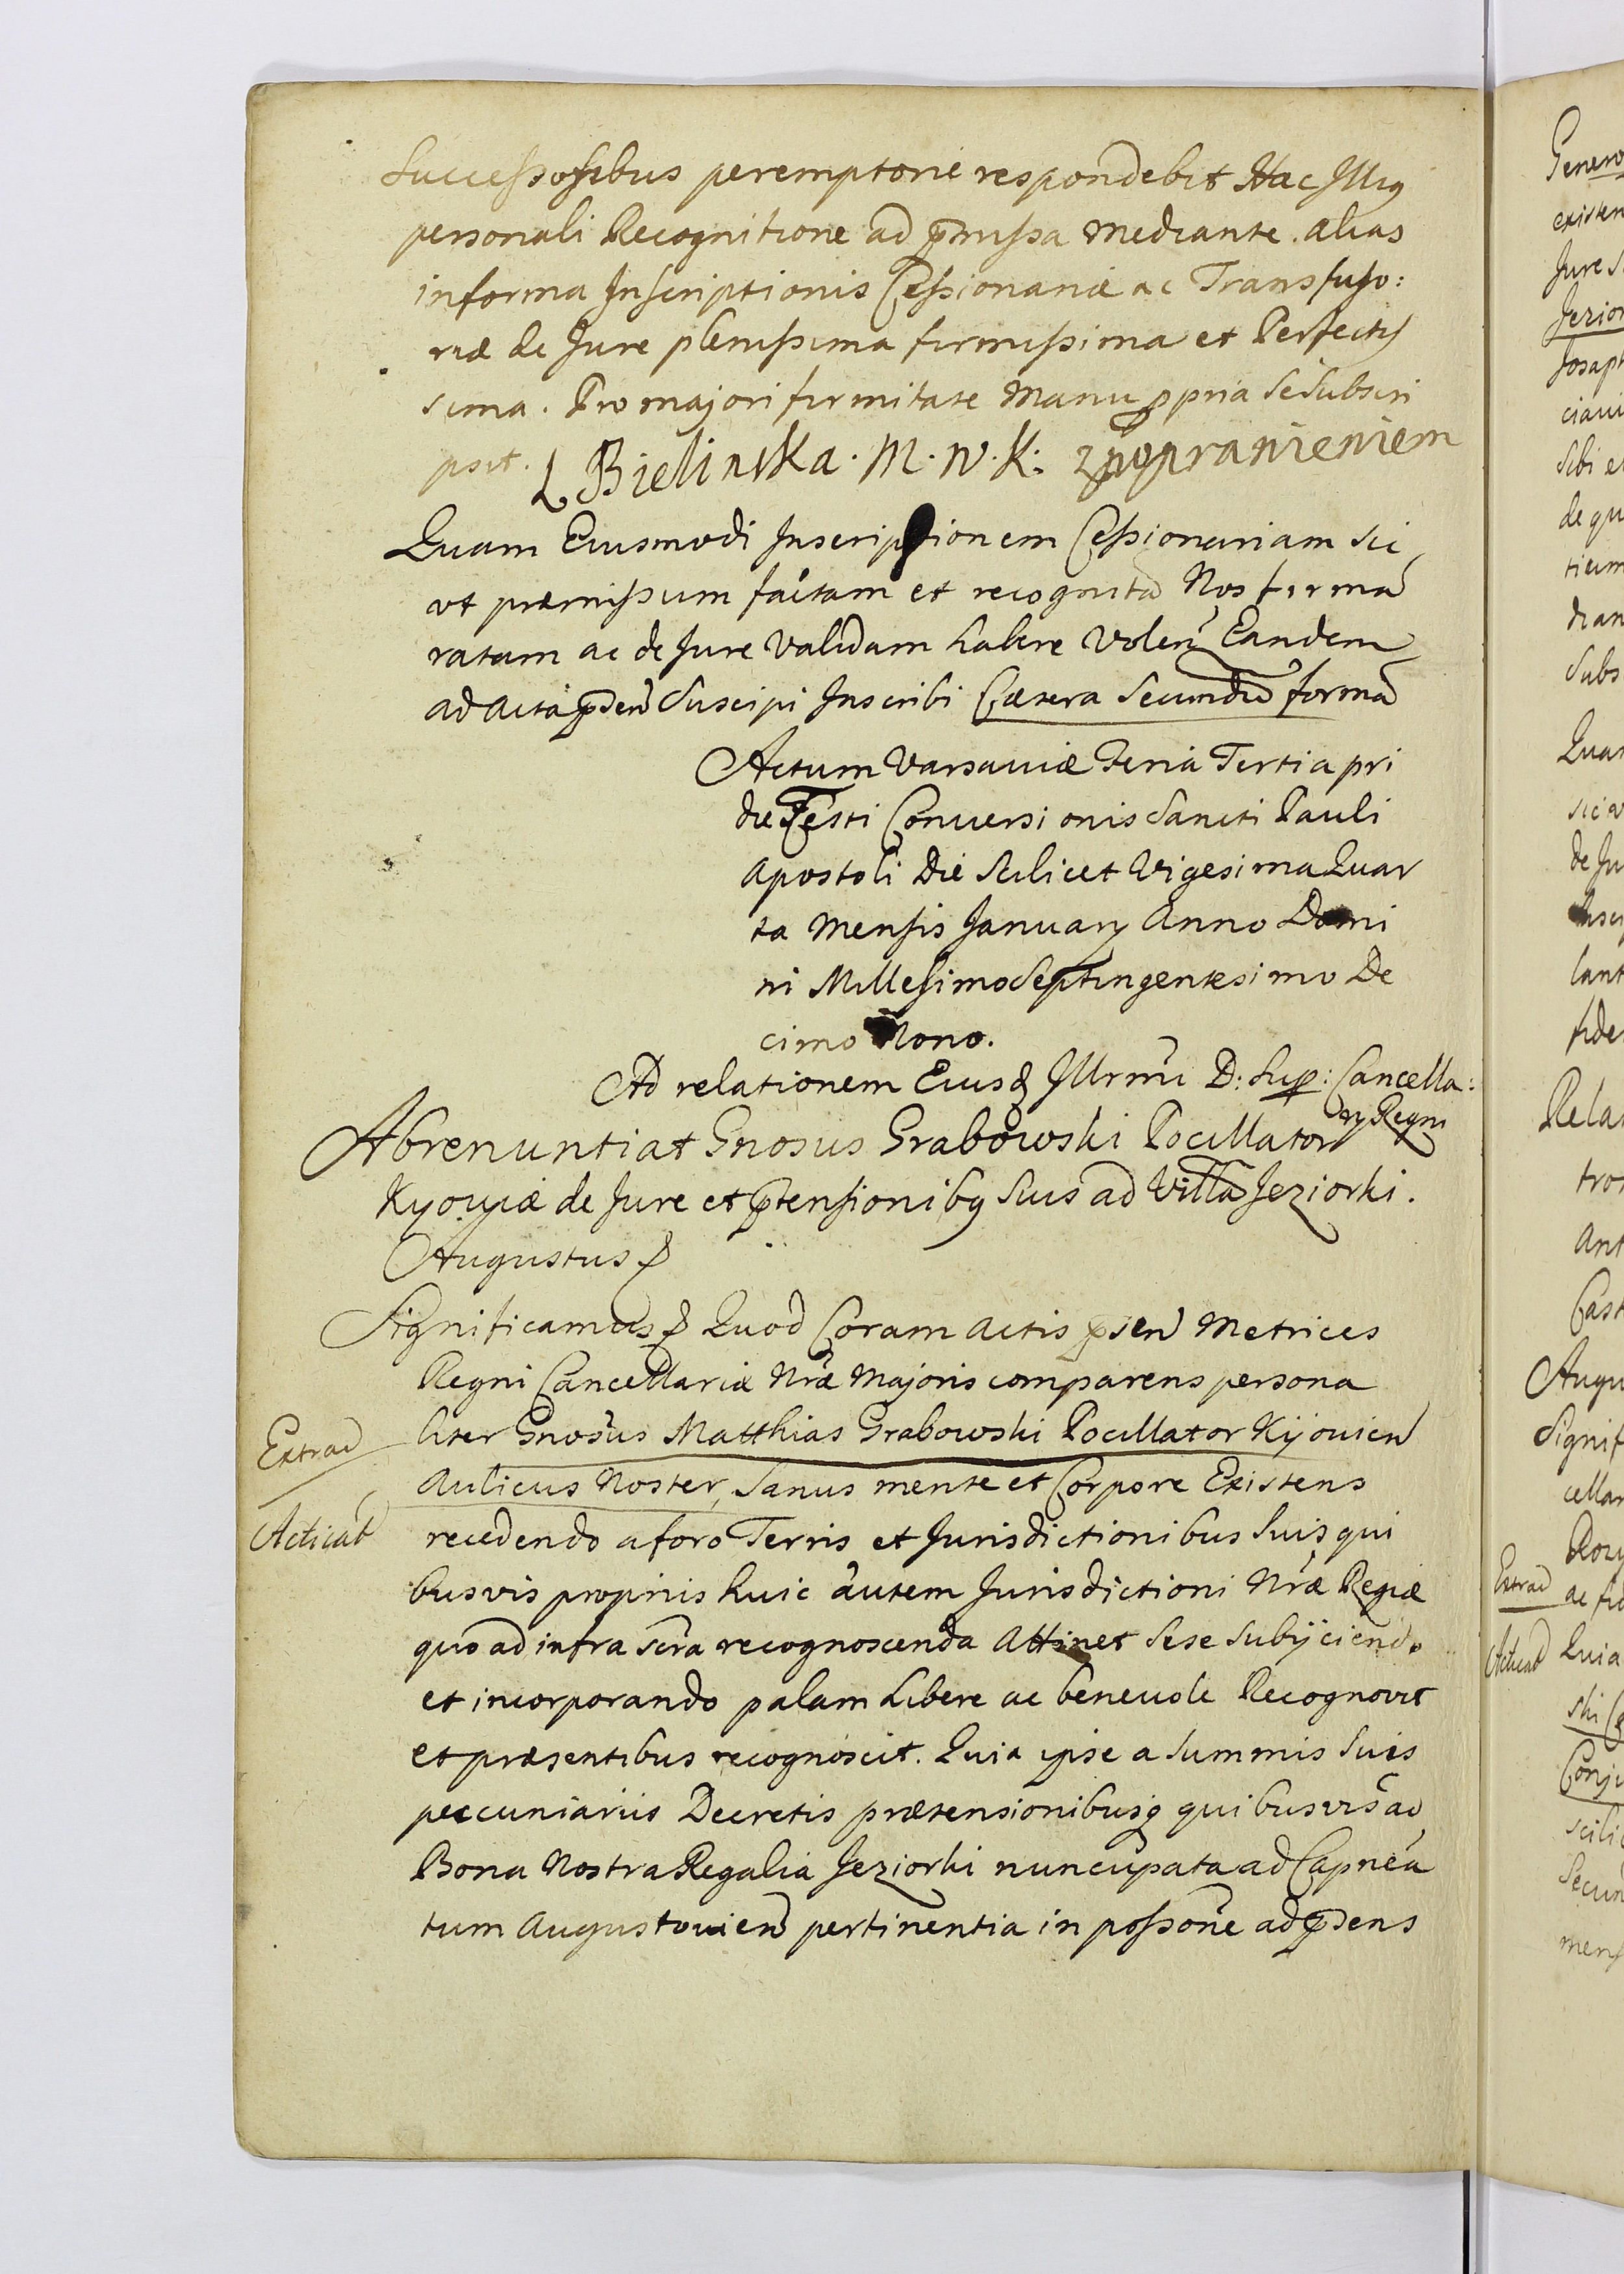 Successoribus peremptorie respondebit Hac Illius
personali Recognitione ad pmissa mediante. alias
in forma Inscriptionis Cessionariæ ac Transfuso:
riæ de Jure plenissima firmissima et Perfectis
sima. Pro majori firmitate Manu ppria se subscri
psit. L Bielinska. M. W. K: z popranieniem
Quam Eiusmodi Inscriptionem Cessionariam sic
ut præmissum factam et recognitã Nos firmã
ratam ac de Jure validam habere volen Eandem
ad acta psen Suscipi Inscribi Cætera Secundũ formã
Actum Varsaviæ Feria Tertia pri
die Festi Conversionis Sancti Pauli
Apostoli Die Scilicet Vigesima Quar
ta Mensis January Anno Domi
ni Millesimo Septingentesimo De
cimo Nono.
Ad relationem Eiusd Illrmi D: Sup: Cancella:
ry Regni
Abrenuntiat Gnosus Grabowski Pocillator
Kyoviæ de Jure et ptensionibq suis ad Villã Jeziorki.
Augustus
Significamus Quod Coram Actis psen Metrices
Regni Cancellariæ Nræ Majoris comparens persona
Extrad
liter Gnosus Matthias Grabowski Pocillator Kijovien
Aulicus Noster, Sanus mente et Corpore Existens
Acticat
recedendo a foro Terris et Jurisdictionibus Suis qui
busvis proprijs huic autem Jurisdictioni Nræ Regiæ
quo ad infra scra recognoscenda Attinet sese subijciendo
et incorporando palam Libere ac benevole Recognovit
et præsentibus recognoscit. Quia ipse a Summis Suis
peccuniarijs Decretis prætensionibusq quibusvis ad
Bona Nostra Regalia Jeziorki nuncupata ad Capnea
tum Augustovien pertinentia in possone ad psens
Extrad
Acticat